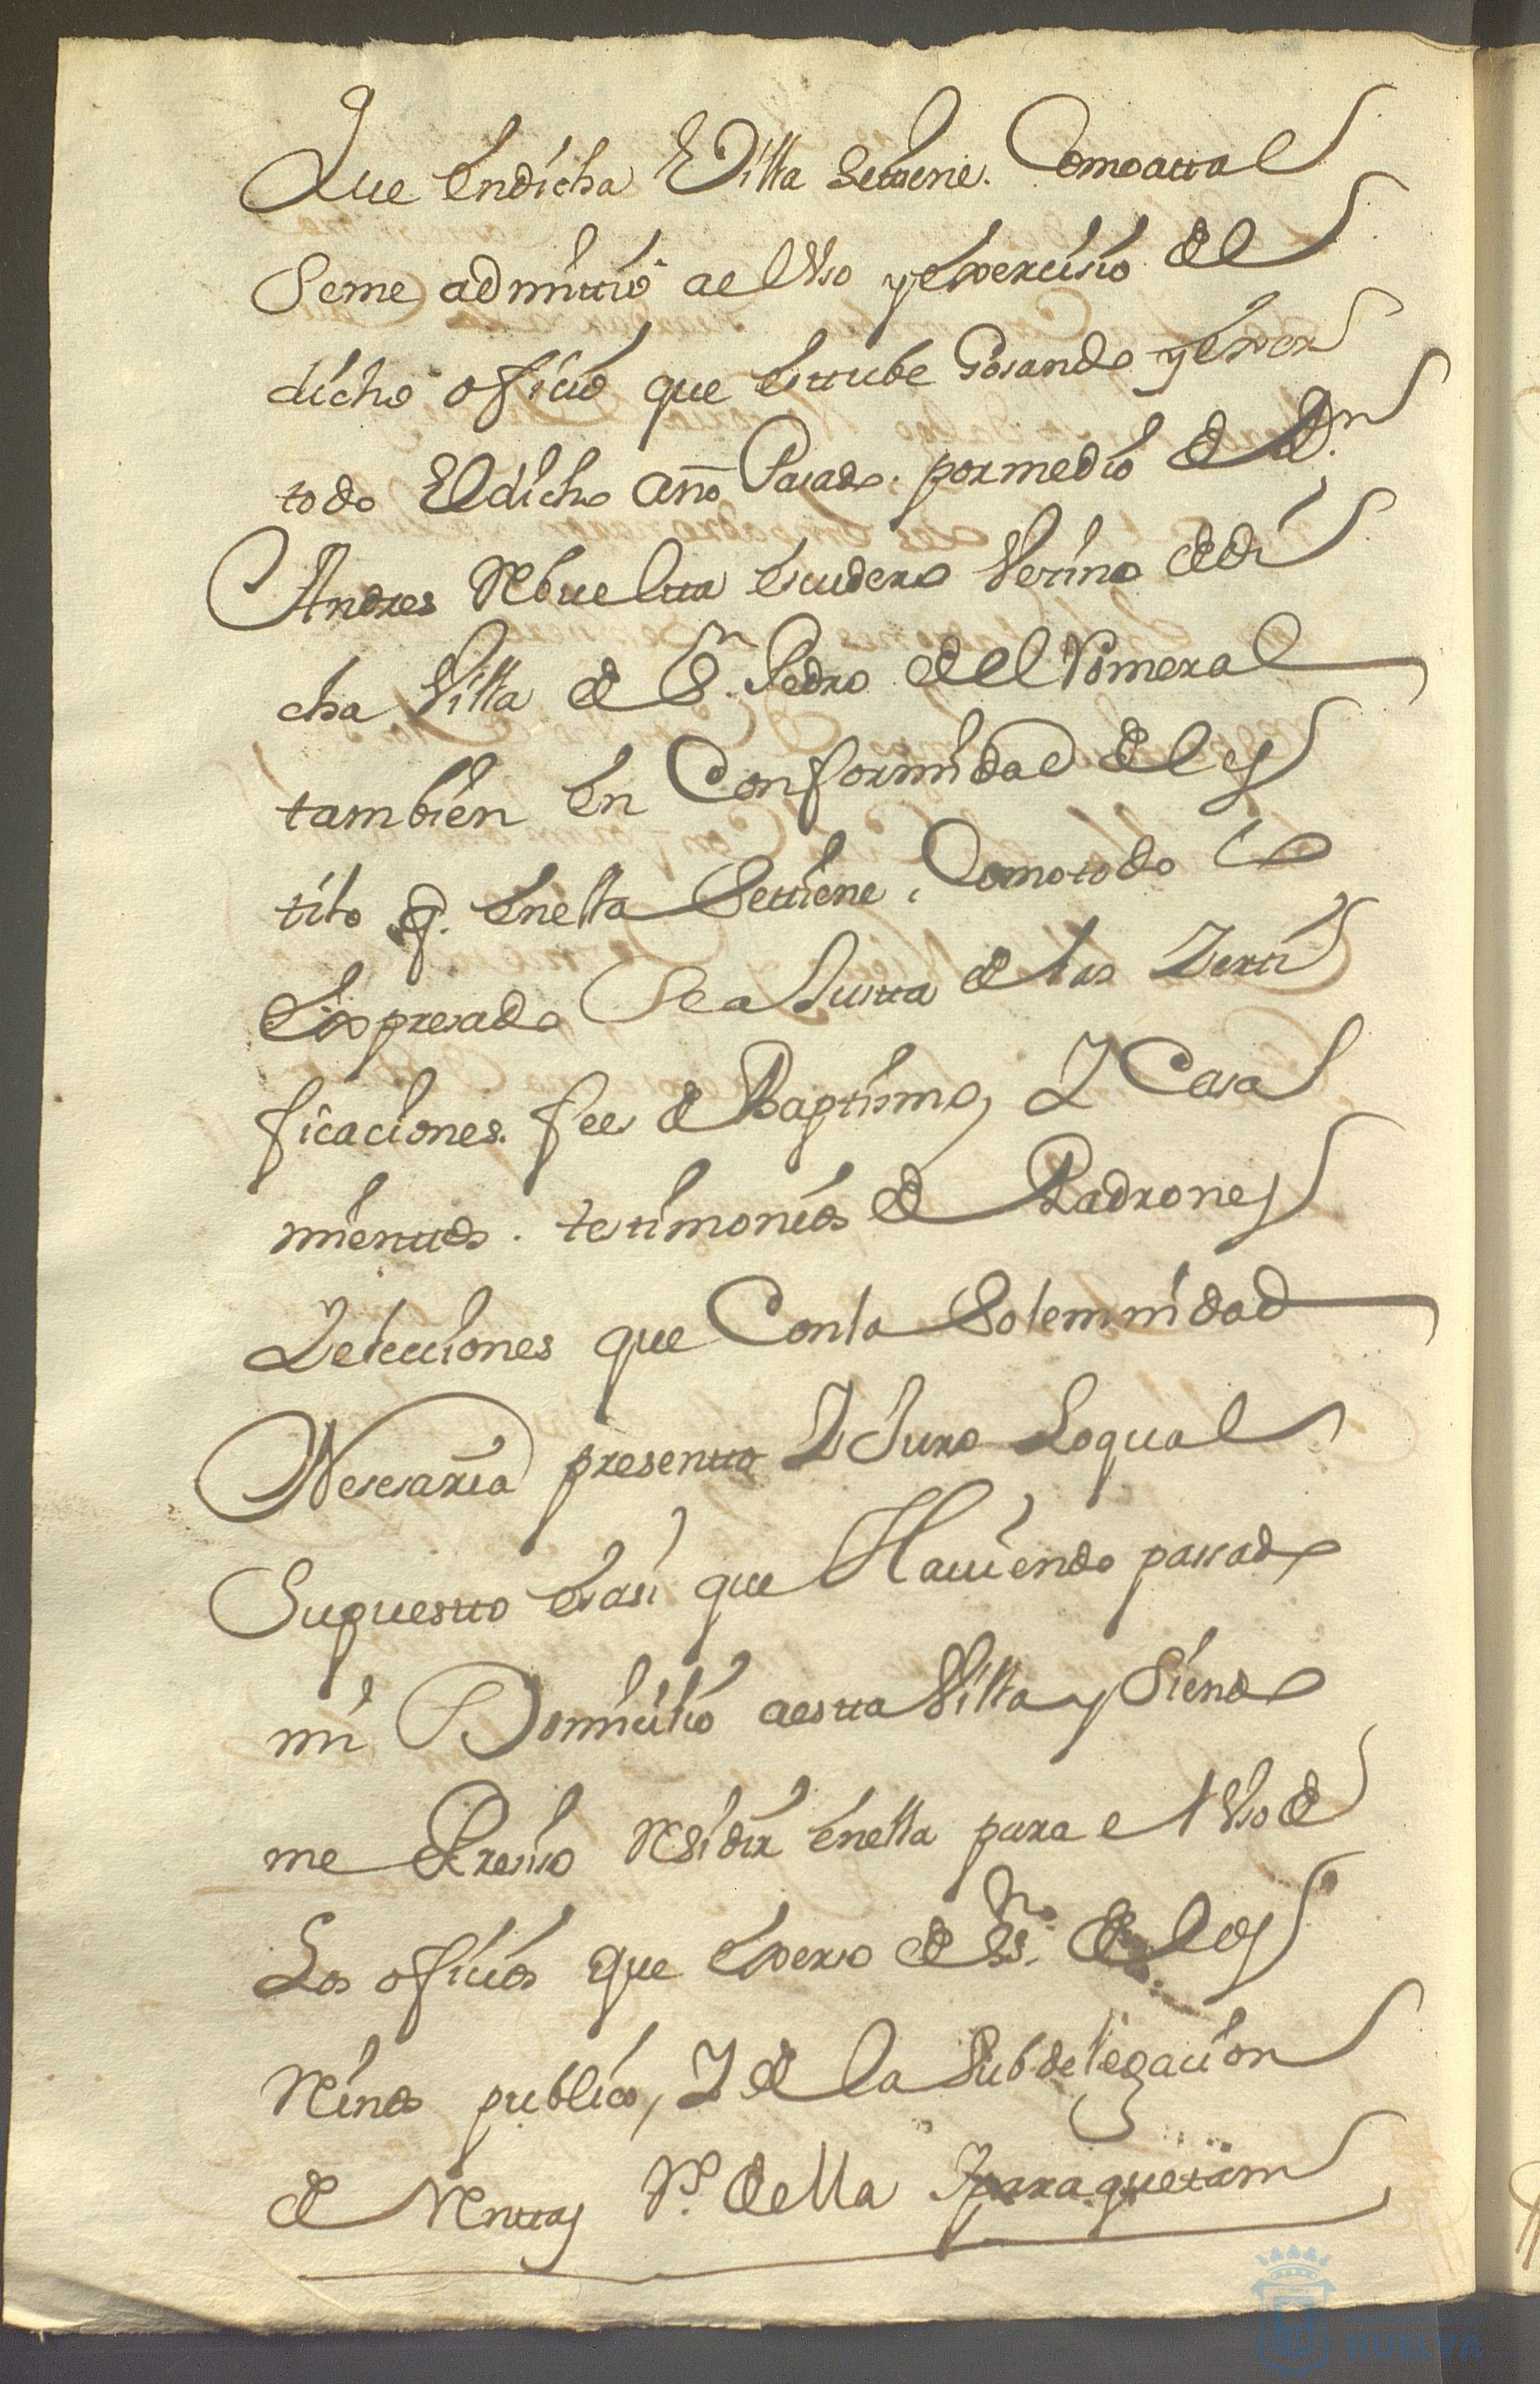 Que en dicha Villa se tiene. Como a tal
se me admitio a el Uso y exercisio del
dicho oficio que estube Gosando y exer
todo El dicho año Pasado. por medio de Dn
Andres Rebuelta escudero Vezino de di
cha Villa de Sn. Pedro del Romeral
tambien en Conformidad del es
tilo q. en ella se tiene, Como todo lo
Expresado se aJusta de las Zerti
ficaciones. fee de Baptismo, Y Casa
mientos. testimonios de Padrones
Y elecciones que Con la Solemnidad
Nesesaria presento Y Juro Lo qual
Supuesto es asi que Haviendo passado
mi Domicilio a esta Villa y Siendo
me Presiso Residir en ella para el Uso de
Los oficios que exerso de Ss.no de el Rey
Nro. publico, Y de la Subdelegacion
de Rentas Rs. de ella Y para que tam
HUELVA